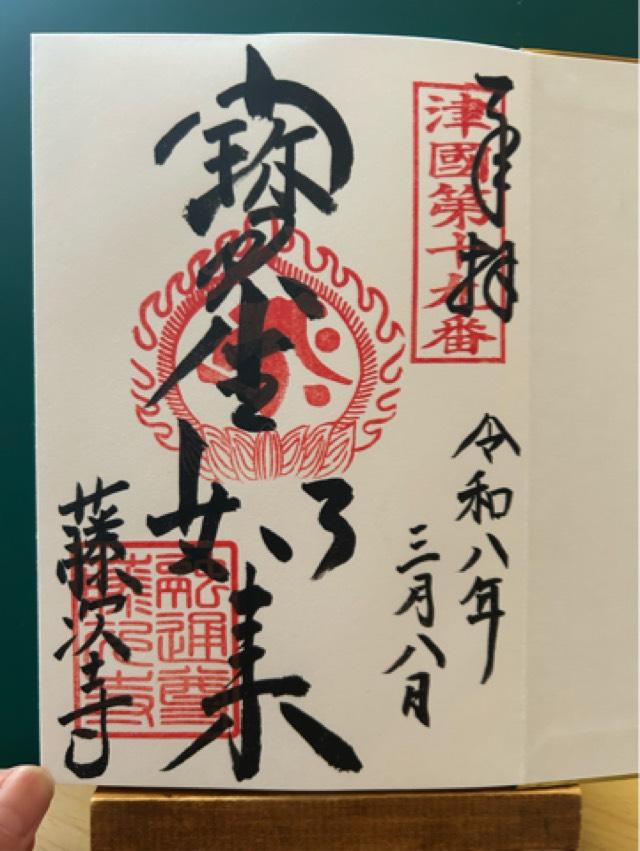 奉拝
津國第十九番
令和八年
三月八日
寶生如来
藤次寺
融通尊
藤次寺